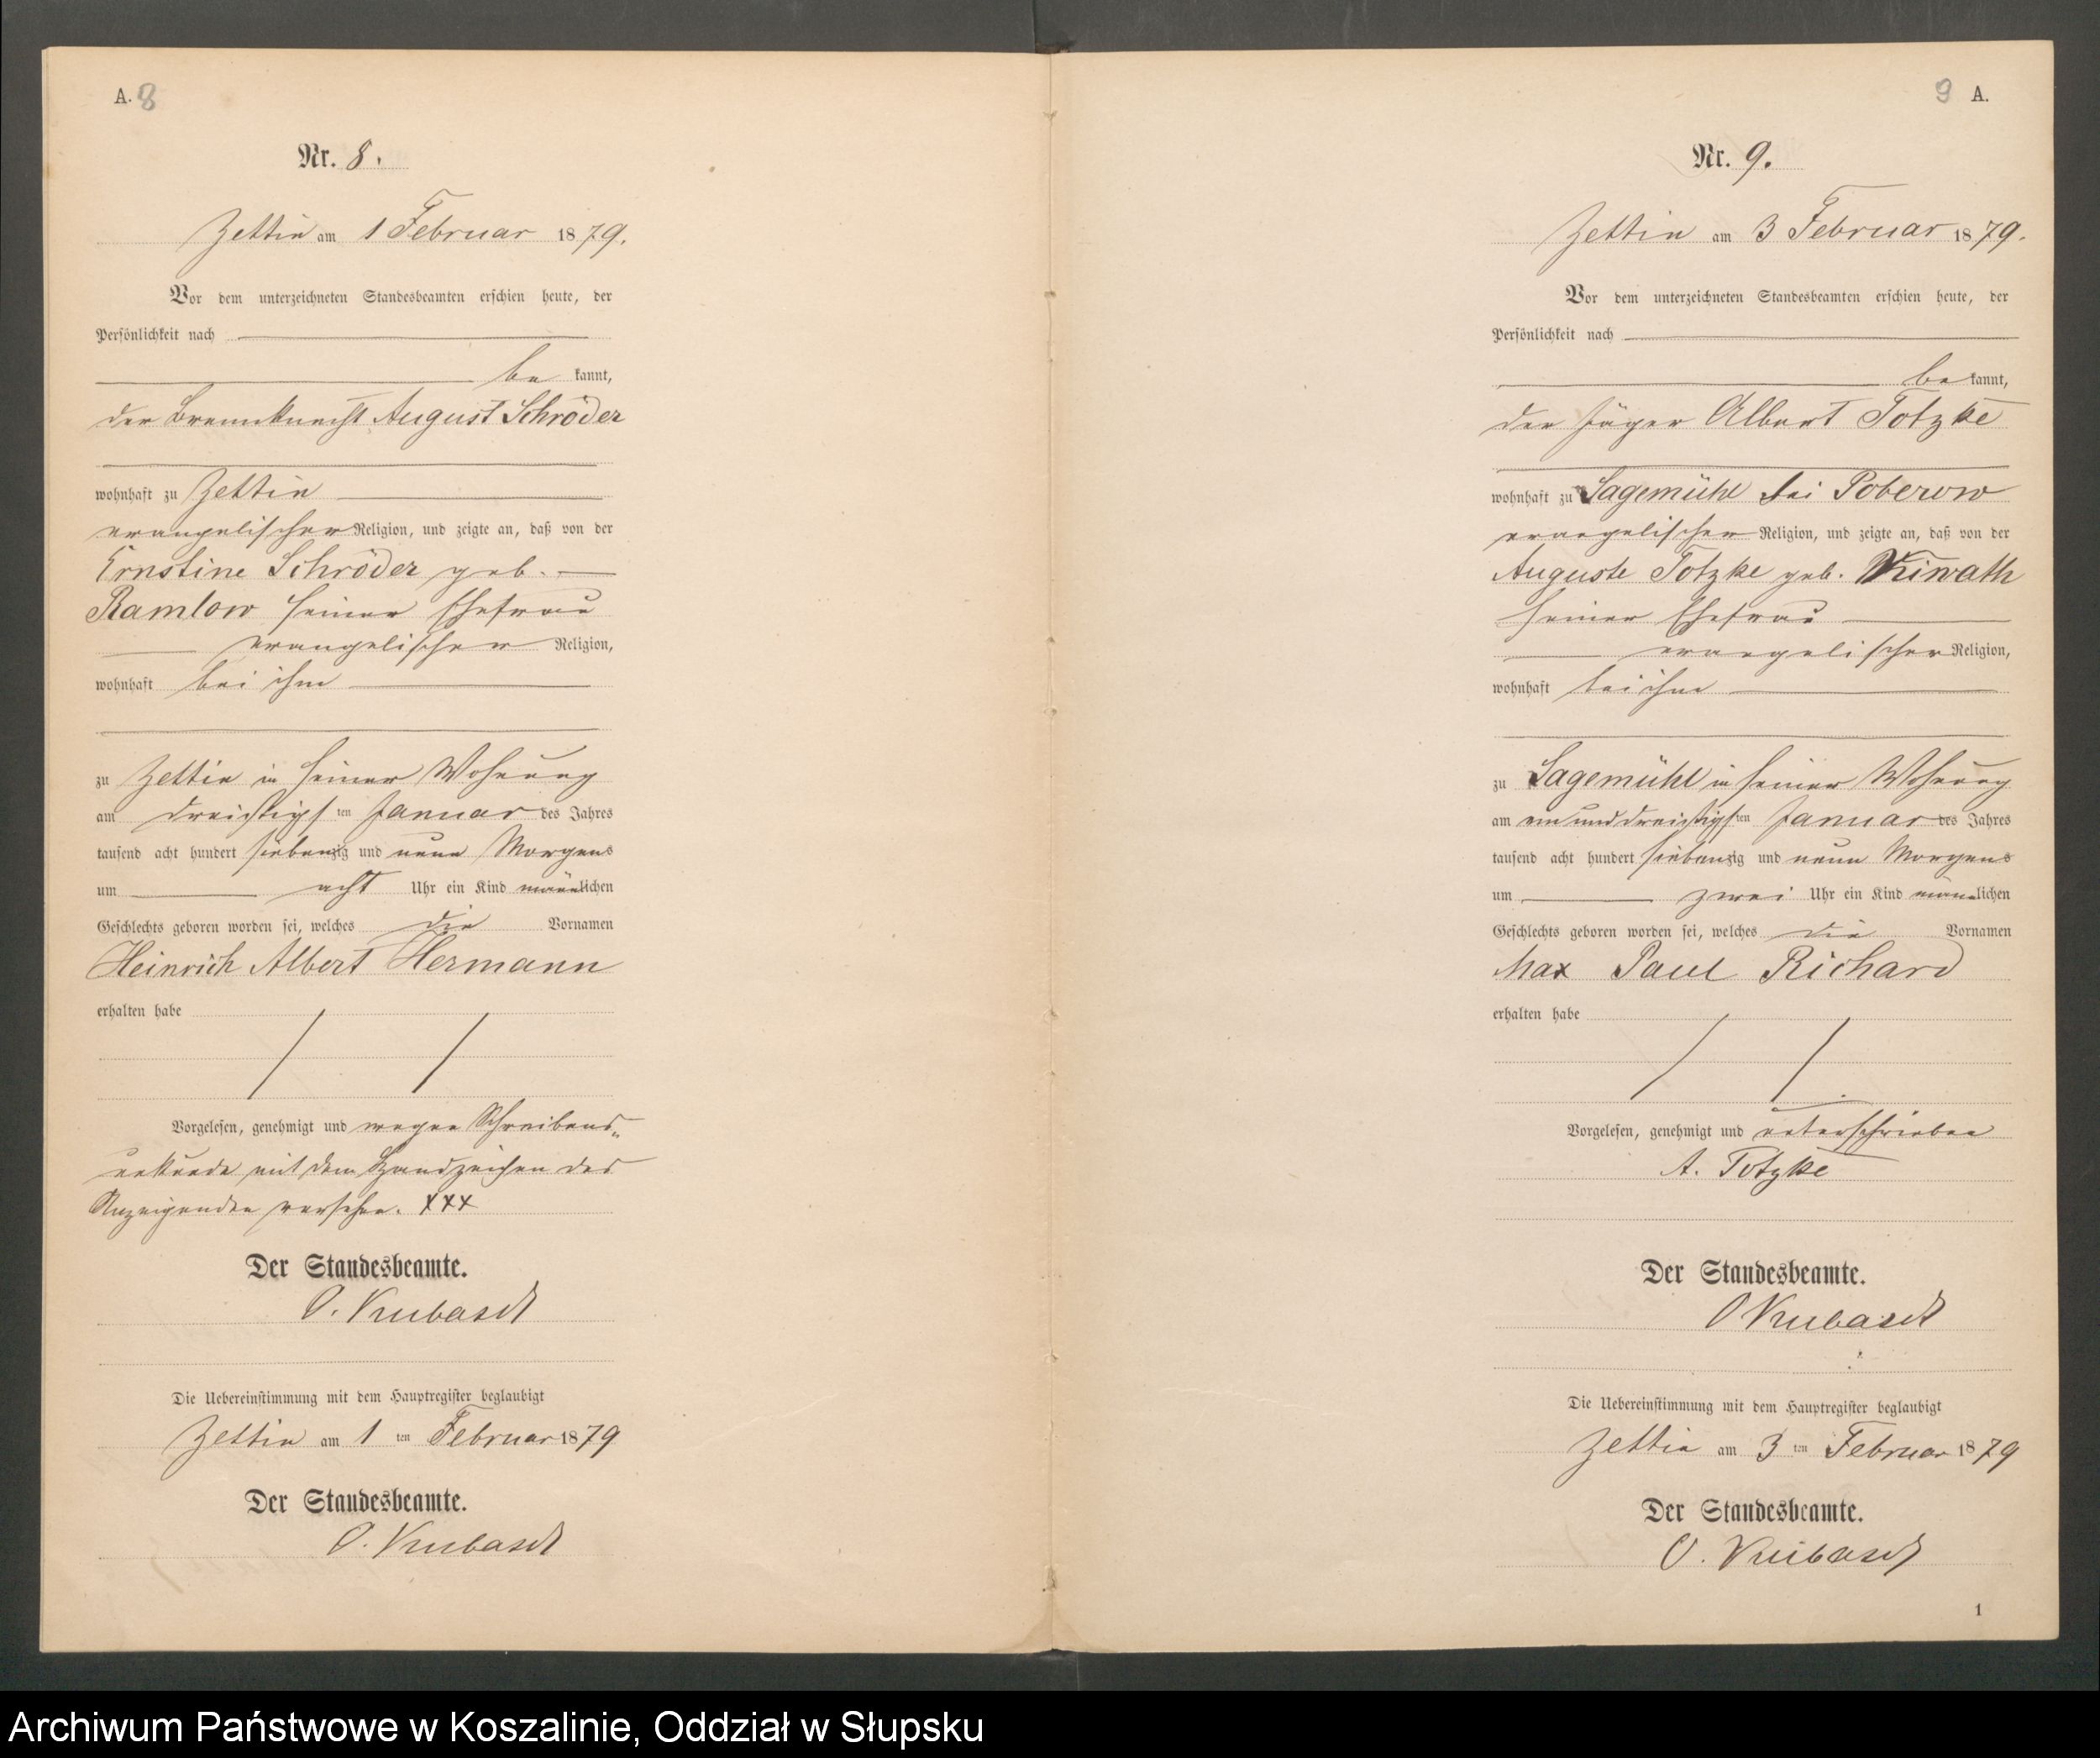 A. 8
Nr. 8.
Zettin am 1 Februar 1879.
Vor dem unterzeichneten Standesbeamten erschien heute, der
Persönlichkeit nach
be kannt,
der Brennknecht August Schröder
wohnhaft zu Zettin
evangelischer Religion, und zeigte an, daß von der
Ernstine Schröder geb.
Ramlow seiner Ehefrau
evangelischer Religion,
wohnhaft bei ihm
zu Zettin in seiner Wohnung
am dreißigsten Januar des Jahres
tausend acht hundert siebenzig und neun Morgens
um acht Uhr ein Kind männlichen
Geschlechts geboren worden sei, welches die Vornamen
Heinrich Albert Hermann
erhalten habe
Vorgelesen, genehmigt und wegen Schreibens„
unkunde mit dem Handzeichen des
Anzeigenden versehen. XXX
Der Standesbeamte.
O. Krubasdt
Die Uebereinstimmung mit dem Hauptregister beglaubigt
Zettin am 1 ten Februar 1879
Der Standesbeamte.
O. Krubasdt
9 A.
Nr. 9.
Zettin am 3 Februar 1879.
Vor dem unterzeichneten Standesbeamten erschien heute, der
Persönlichkeit nach
be kannt,
der Jäger Albert Totzke
wohnhaft zu Sagemühl bei Poberow
evangelischer Religion, und zeigte an, daß von der
Auguste Totzke geb.
seiner Ehefrau
evangelischer Religion,
wohnhaft bei ihm
zu Sagemühl in seiner Wohnung
am ein und dreißigsten Januar des Jahres
tausend acht hundert siebenzig und neun Morgens
um zwei Uhr ein Kind männlichen
Geschlechts geboren worden sei, welches die Vornamen
Max Paul Richard
erhalten habe
Vorgelesen, genehmigt und unterschrieben
A. Totzke
Der Standesbeamte.
O Krubasdt
Die Uebereinstimmung mit dem Hauptregister beglaubigt
Zettin am 3 ten Februar 1879
Der Standesbeamte.
O. Krubasdt
1
Archiwum Państwowe w Koszalinie, Oddział w Słupsku